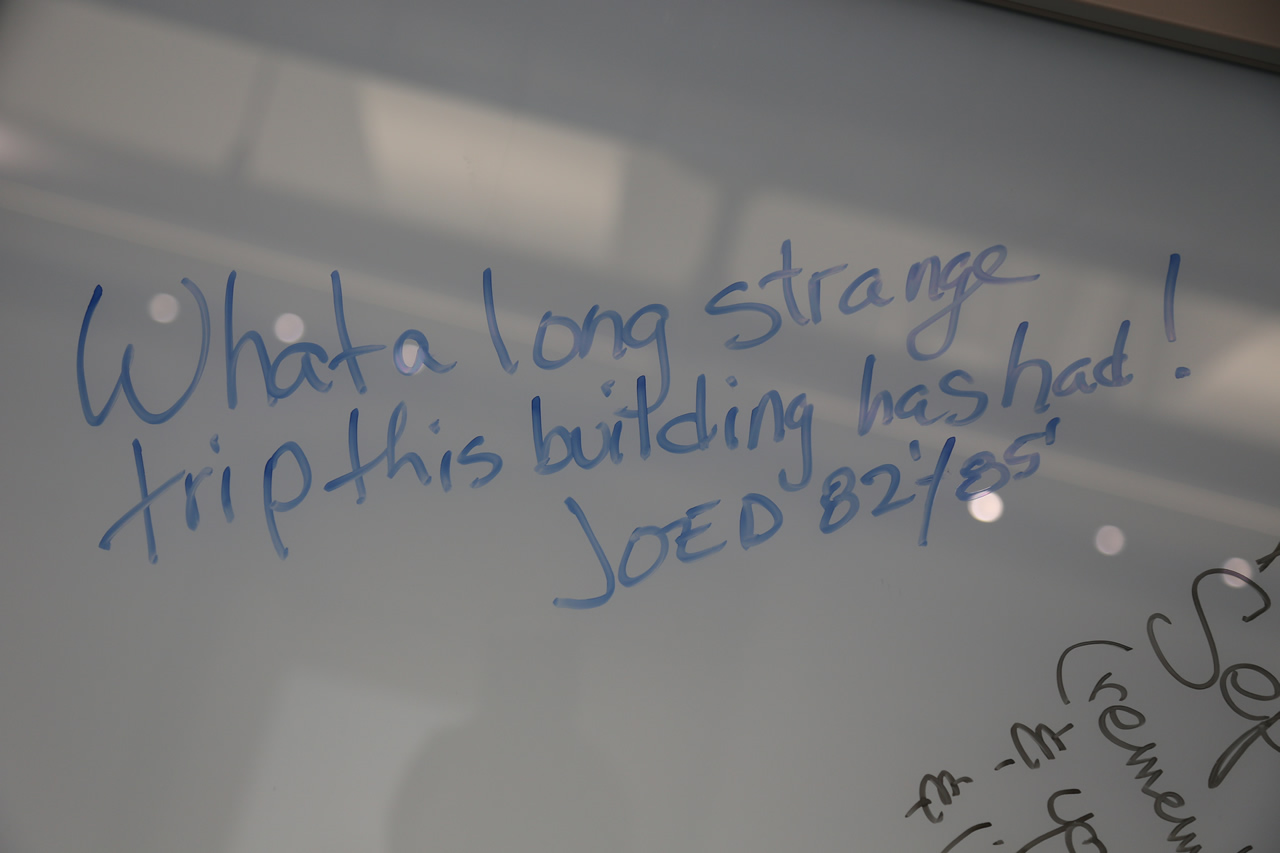 What a long strange
trip this building has had!
JOED 82'/85'
Sep
(remem